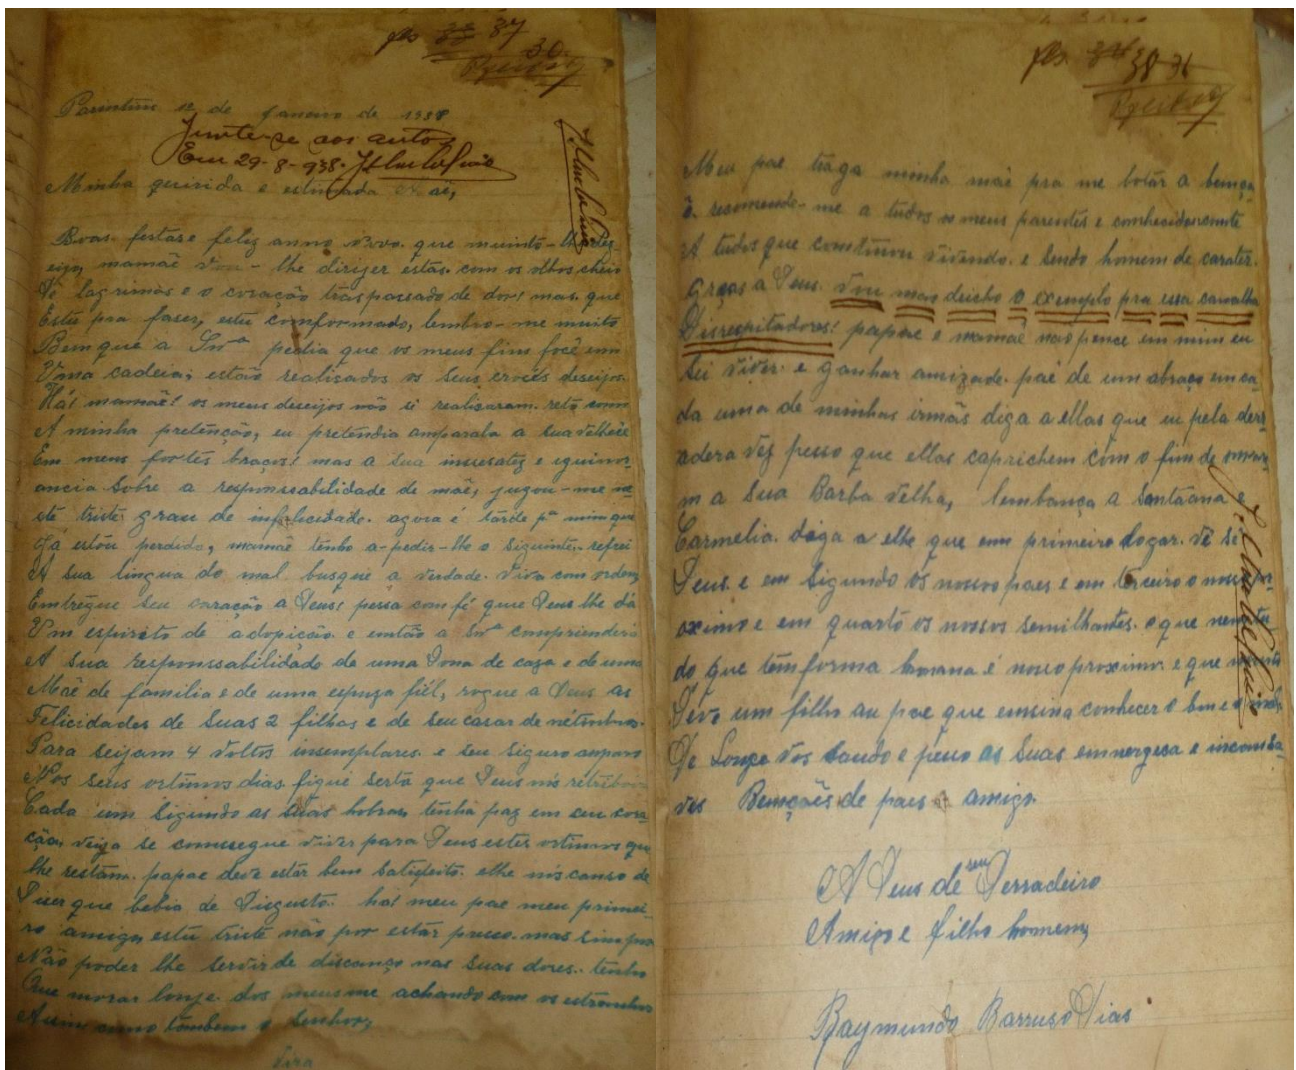 fls 37
30
Parentins 12 de janeiro de 1938
Junte-se aos autos
Em 29-8-938.
Minha quirida e estimada Mãe,
Boas festas e feliz anno novo. que muinto-lhe dez
eijo, mamãe vou-lhe dirijer estas. com os olhos cheio
De lagrimas e o coração traspassado de dor! mas. que
Estes pra faser, estu comformado, lembro-me muito
Bem que a Snrª pedia que os meus fim focê em
Uma cadeia; estão realizados os seus crocés deseijos.
Há! mamãe! os meus deseijos não si realisaram.
A minha pretenção, eu pretendia amparala a sua velhice
Em meus fortes braços! mas a sua insesates e iguinor
ancia sobre a responssabilidade de mãe, jugou-me n
ste triste grau de infilicidade. agora é tarde pª mim que
Já estou perdido, mamãe tenho a-pedir-lhe o siguinte. refrei
A sua lingua do mal busque a verdade. Viva com ordem
Emtregue seu coração a Deus! pessa com fé que Deus lhe dá
Um espirito de adopição e emtão a Snrª comprienderá
A sua responssabilidade de uma Dona de caza e de uma
Mãe de familia e de uma espuza fiél, rogue a Deus as
Felicidades de suas 2 filhas e de seu casar de netinhos.
Para seijam 4 voltos insemplares. e seu siguro amparo
Nos seus ortimos dias. fique serta que Deus nós retribui
Cada um sigundo as suas hobras, tenha paz em ceu cora
ção. veija se comsegue viver para Deus estes ortimos que
lhe restam. papae deve estár bem satifeito. elhe nós canso de
Diser que bebia de Disgusto. há! meu pae meu primei
ro amigo, estu triste não por estar preso. mas sim por
Não poder lhe servir de discanço nas suas dores. tenho
Que morar lonje. dos meus me achando com os estranhos
Asim como tambem o senhor,
Vira
fls 38 31
Meu pae traga minha mãe pra me botar a bença
ē. recomende-me a tudos os meus parentes e conhecidos conte
A tudos que comtinuu vivendo. e sendo homem de carater.
Graças a Deus. vou mas deicho o exemplo pra essa canalha
Disrespitadores! papae e mamae não pence em mim eu
Sei viver. e ganhar amizade. pae de um abraço em ca
da uma de minhas irmãs diga a ellas que eu pela derr
adera vez pesso que ellas caprichem com o fim de
m a Sua Barba velha, lembança a Santãana e
Carmelia. diga a elhe que em primeiro logar. vê se
Deus. e em sigundo os nossos paes e em terceiro o nosso pr
oximo e em quarto os nossos semilhantes. e que nem tu
do que tem forma humana é nosso proximo. e que muinto
Deve um filho au pae que emsina conhecer o bem e o mal.
De Lonje vos saudo e peso as suas
ves Bemçães de paes e amigo.
A Deus de seu Derradeiro
Amigo e filho homem,
Raymundo Barruso Dias